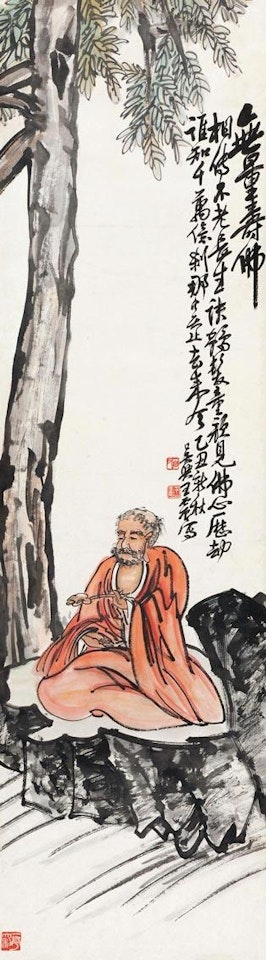 無量壽佛
相傳不老長生訣鶴髮童顏見佛心歷劫
誰知千萬億刹那止去来今乙丑新秋
吳興王震寫